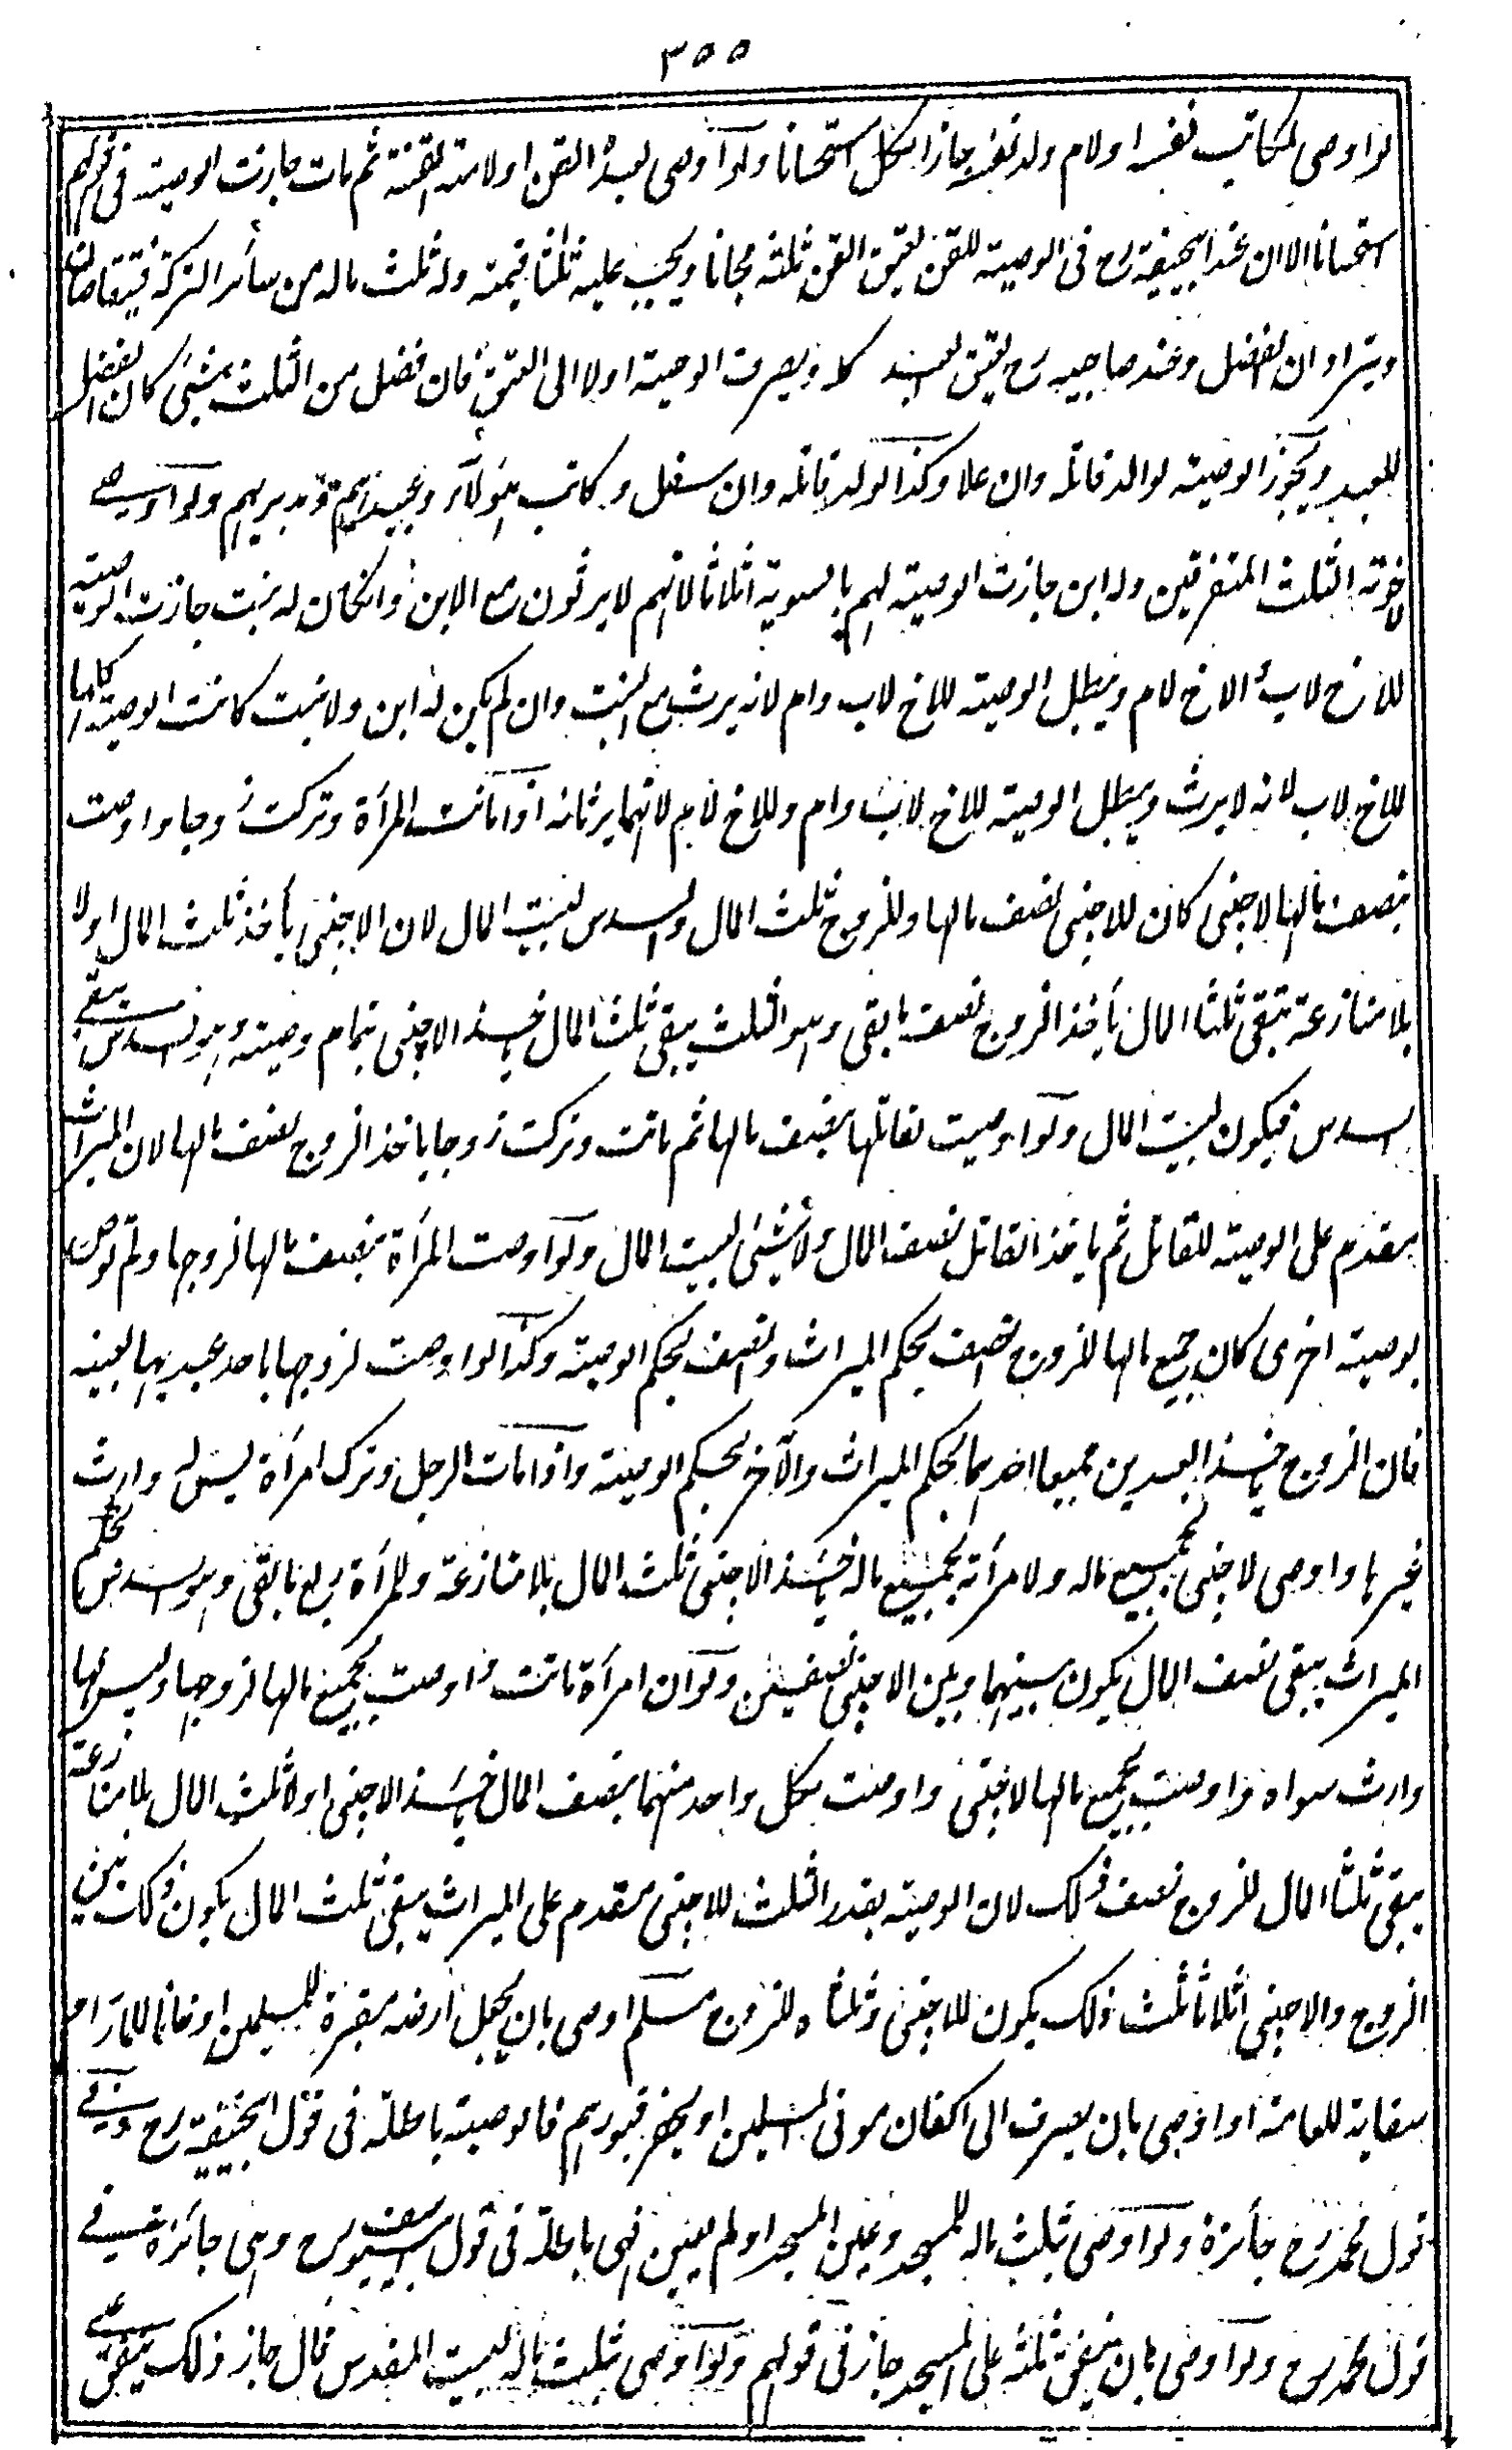 ٣٥٥
لو اوصى لمكاتب نفسه او لام ولد نفسه جاز الكل استحسانا ولو اوصى لعبده القن او لامته القنة ثم مات جازت الوصية فى قولهم
استحسانا الا ان عند ابيحنيفة رح فى الوصية للقن يعتق القن ثلثه مجانا ويجب عليه ثلثا قيمته وله ثلث ماله من سائر التركة فيتقاصان
ويترادان الفضل وعند صاحبيه رح يعتق العبد كله ويصرف الوصية اولا الى العتق فان فضل من الثلث شئ كان الفضل
للعبد ويجوز الوصية لوالد قاتله وان علا وكذا لولد قاتله وان سفل ومكاتب هؤلاء وعبيدهم ومدبريهم ولو اوصى
لاخوته الثلث المتفرقين وله ابن جازت الوصية لهم بالسوية اثلاثا لانهم لا يرثون مع الابن وانكان له بنت جازت الوصية
للاخ لاب والاخ لام ويبطل الوصية للاخ لاب وام لانه يرث مع البنت وان لم يكن له ابن ولا بنت كانت الوصية كلها
للاخ لاب لانه لا يرث ويبطل الوصية للاخ لاب وام وللاخ لام لانهما يرثانه اذا ماتت المرأة وتركت زوجا واوصت
بنصف مالها لاجنبى كان للاجنبى نصف مالها وللزوج ثلث المال والسدس لبيت المال لان الاجنبى يأخذ ثلث المال اولا
بلا منازعة تبقى ثلثا المال يأخذ الزوج نصف ما بقى وهو الثلث يبقى ثلث المال يأخذ الاجنبى تمام وصيته وهو السدس يبقى
السدس فيكون لبيت المال ولو اوصيت لقاتلها بنصف مالها ثم ماتت وتركت زوجا ياخذ الزوج نصف مالها لان الميراث
مقدم على الوصية للقاتل ثم ياخذ القاتل نصف المال ولا شيئ لبيت المال ولو اوصت المرأة بنصف مالها لزوجها ولم توص
بوصية اخرى كان جميع مالها للزوج نصف بحكم الميراث ونصف بحكم الوصية وكذا لو اوصت لزوجها باحد عبديها بعينه
فان الزوج يأخذ العبدين جميعا احدهما بحكم الميراث والآخر بحكم الوصية واذا مات الرجل وترك امرأة ليس له وارث
غيرها واوصى لاجنبى بجميع ماله ولامرأته بجميع ماله يأخذ الاجنبى ثلث المال بلا منازعة وللمرأة ربع ما بقى وهو السدس بحكم
الميراث يبقى نصف المال يكون بينهما وبين الاجنبى نصفين ولو ان امرأة ماتت واوصت بجميع مالها لزوجها وليس لها
وارث سواه واوصت بجميع مالها لاجنبى واوصت لكل واحد منهما بنصف المال يأخذ الاجنبى اولا ثلث المال بلا منازعة
يبقى ثلثا المال للزوج نصف ذلك لان الوصية بقدر الثلث للاجنبى مقدم على الميراث يبقى ثلث المال يكون ذلك بين
الزوج والاجنبى اثلاثا ثلث ذلك يكون للاجنبى وثلثاه للزوج مسلم اوصى بان يجعل ارضه مقبرة للمسلمين او خانا للمارة او
سقاية للعامة او اوصى بان يصرف الى اكفان موتى المسلمين او يحفر قبورهم فالوصية باطلة فى قول ابيحنيفة رح وفى
قول محمد رح جائزة ولو اوصى بثلث ماله للمسجد وعين المسجد او لم يعين فهى باطلة فى قول ابى يوسف رح وهى جائزة فى
قول محمد رح ولو اوصى بان ينفق ثلثه على المسجد جاز فى قولهم ولو اوصى بثلث ماله لبيت المقدس قال جاز ذلك ينفق على